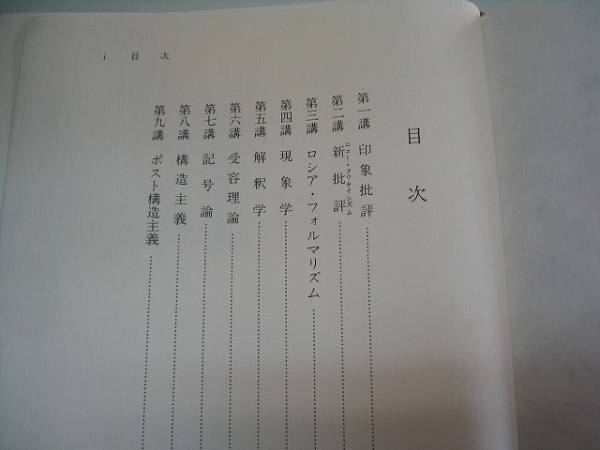 i 目次
目次
第一講 印象批評
第二講 新批評
ニュー・クリティシズム
第三講 ロシア・フォルマリズム
第四講 現象学
第五講 解釈学
第六講 受容理論
第七講 記号論
第八講 構造主義
第九講 ポスト構造主義